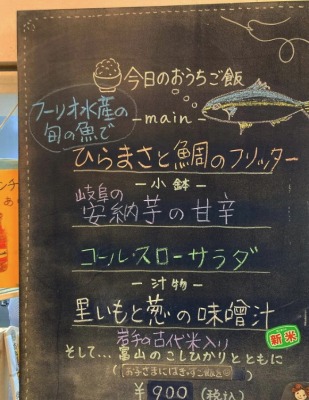 今日のおうちご飯
フーリオ水産の
旬の魚で
-main-
ひらまさと鯛のフリッター
-小鉢-
岐阜の
安納芋の甘辛
コールスローサラダ
-汁物-
里いもと葱の味噌汁
新米
岩手の古代米入り
そして...富山のこしひかりとともに
¥900(税込)